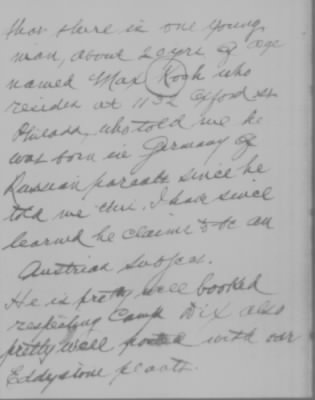 that there is one young
man, about 20 yrs of age
named Max Koch who
resides at 1152 Oxford St
Philada, who told me he
was born in Germany of
Russian parents since he
told me this. I have since
learned he claims to be an
Austrian subject.
He is pretty well booked
respecting Camp Dix also
pretty well posted with our
Eddystone plants.